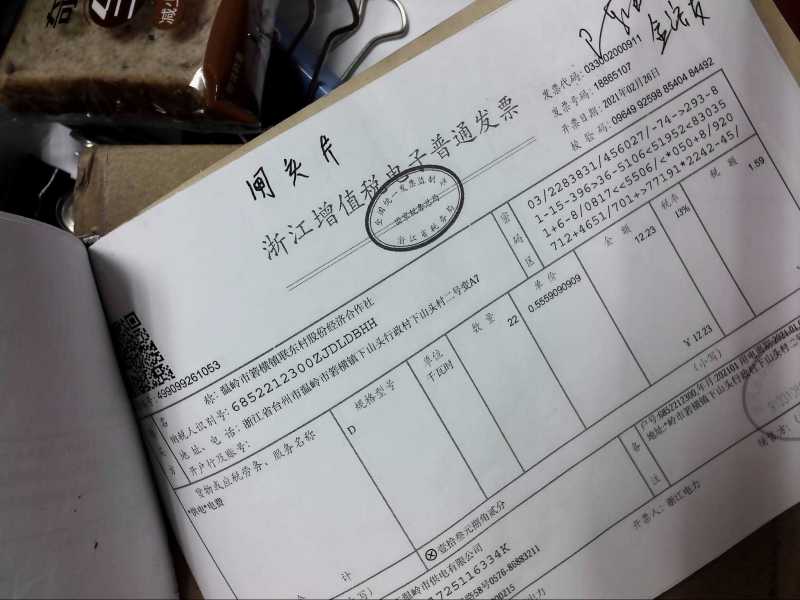 减少
闸头片
浙江增值税电子普通发票
全国统一发票监制章
国家税务总局
浙江省税务局
发票代码: 033002000911
发票号码: 18865107
开票日期: 2021年02月26日
校验码: 09649 92598 85404 84492
499099261053
称: 温岭市箬横镇联东村股份经济合作社
纳税人识别号: 6852212300ZJDLDBHH
地址、电话: 浙江省台州市温岭市箬横镇下山头行政村下山头村二号变A7
开户行及账号:
密码区
03/2283831/456027/-74->293-8
1-15-396>36-5106<51952<83035
1+6-8/0817<<5506/<*050+8/920
712+4651/701+>77191*2242-45/
货物或应税劳务、服务名称
规格型号
单位
数量
单价
金额
税率
税额
*供电*电费
D
千瓦时
22
0.5559090909
12.23
13%
1.59
合计
¥ 12.23
ⓧ壹拾叁元捌角贰分
(小写)
温岭市供电有限公司
725116334K
路58号0576-86883211
备注
户号:6852212300,年月:202101,用电
地址:
岭市箬横镇下山头行政村下山头村二号
开票人: 浙江电力
销售方: (